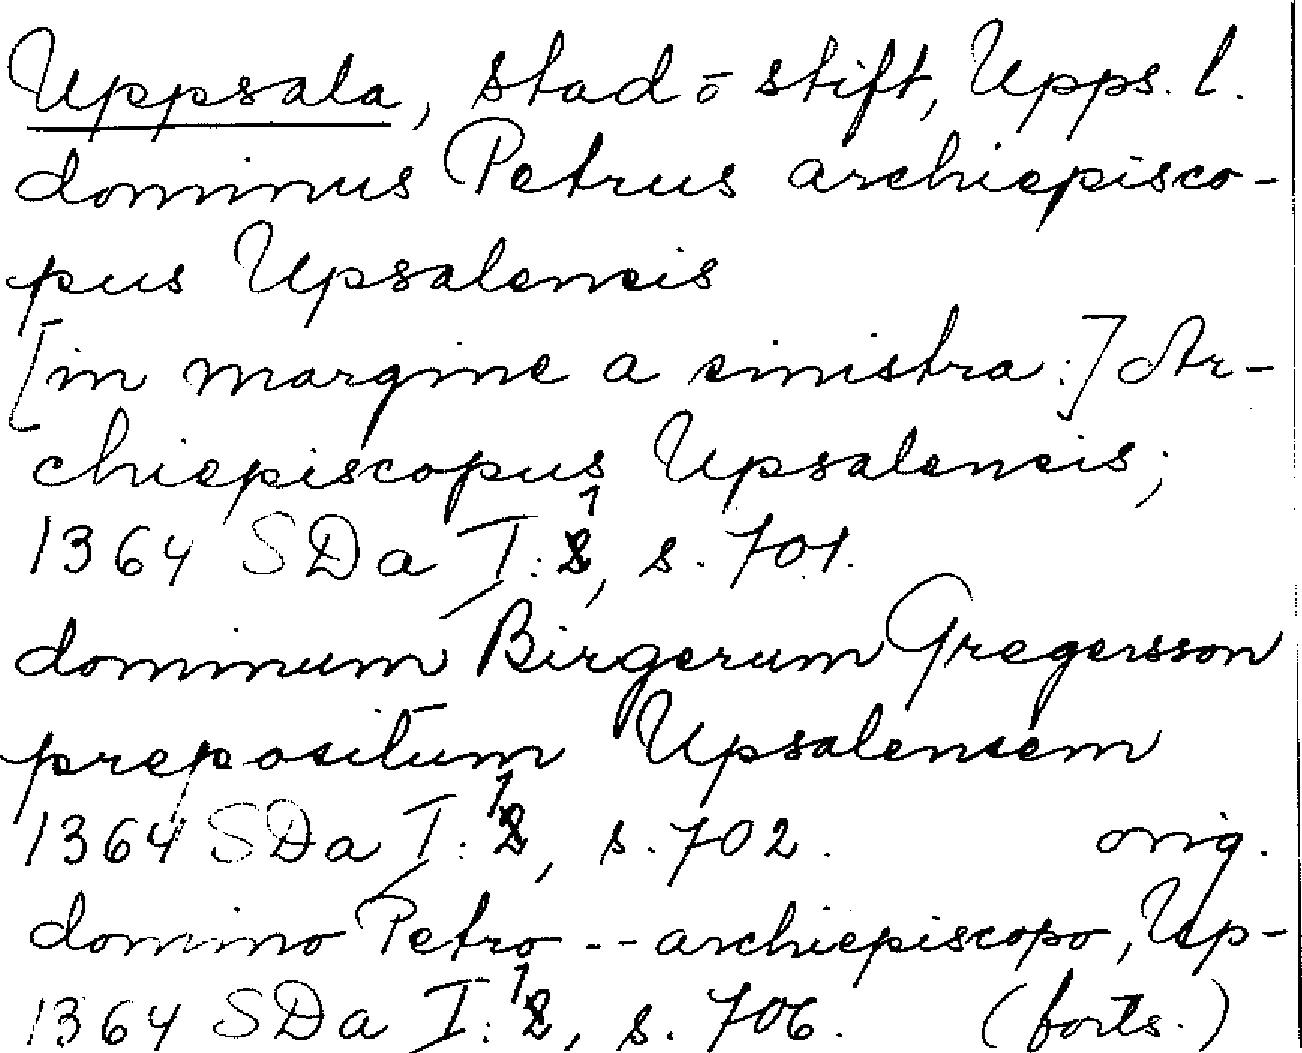 Uppsala, stad o stift, Upps. l.
dominus Petrus archiepisco-
pus Upsalensis
[in margine a sinistra:] Ar-
chiepiscopus Upsalensis;
1364 SDa I:1, s. 701.
dominum Birgerum Gregersson
prepositum Upsalensem
1364 SDa I:1, s. 702. orig.
domino Petro -- archiepiscopo, Up-
1364 SDa I:1, s. 706. (forts.)